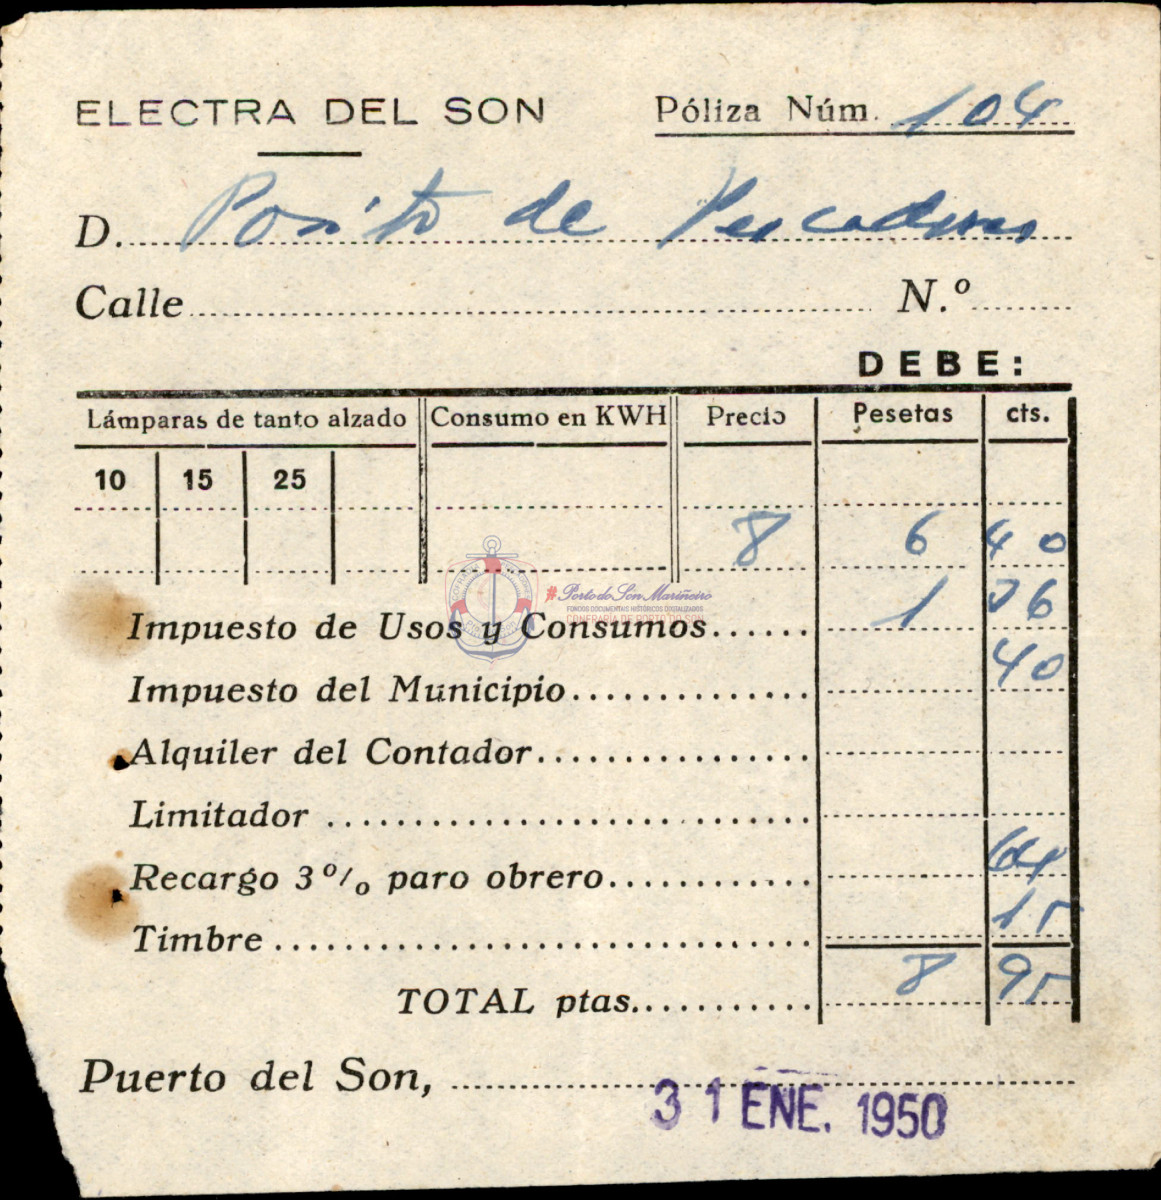 ELECTRA DEL SON Póliza Núm. 104
D. Posito de Pescadores
Calle N.º
DEBE:
Lámparas de tanto alzado Consumo en KWH Precio Pesetas cts.
10 15 25
8 6 40
#PortodoSonMariñeiro
FONDOS DOCUMENTAIS HISTÓRICOS DIXITALIZADOS
CONFRARÍA DE PORTO DO SON
Impuesto de Usos y Consumos 1 36
Impuesto del Municipio 40
Alquiler del Contador
Limitador
Recargo 3% paro obrero 64
Timbre 15
TOTAL ptas. 8 95
Puerto del Son, 31 ENE. 1950